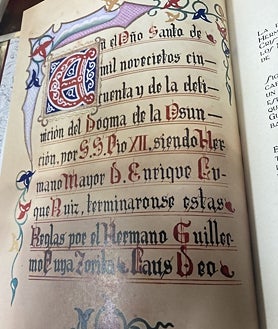 En el Año Santo de
mil novecietos cin-
cuenta y de la defi-
nición del Dogma de la Asun-
ción, por S.S. Pio XII, siendo Her-
mano Mayor D. Enrique Lu-
que Ruiz, terminaronse estas
Reglas por el Hermano Guiller-
mo Laus Deo
LA